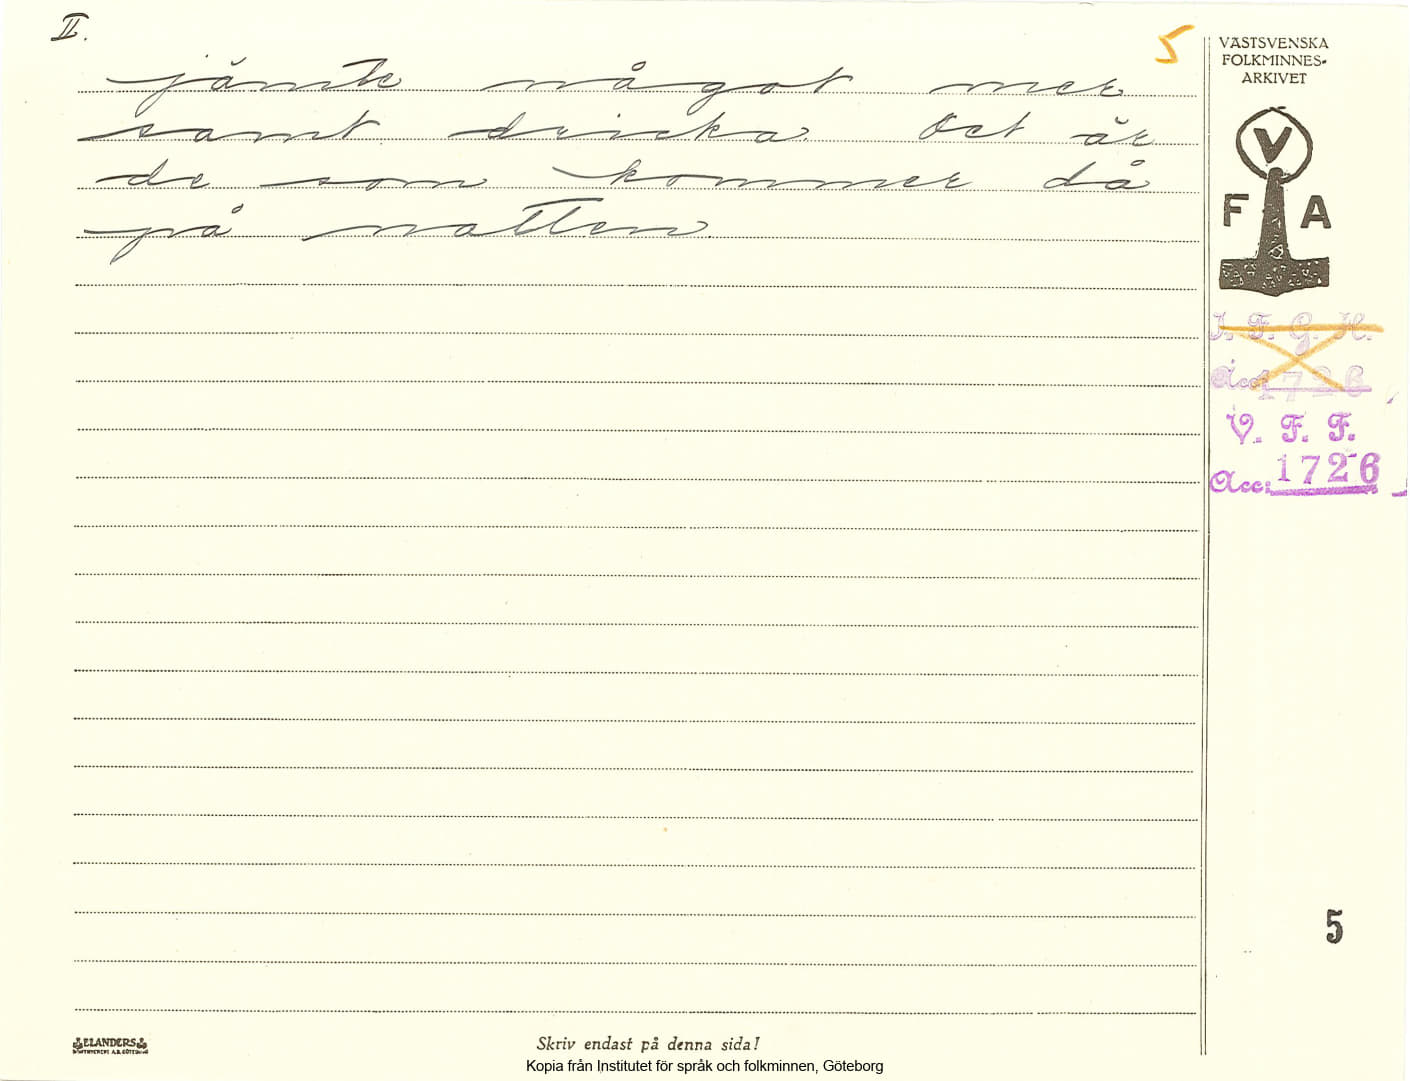 II.
5
jämte något mer
samt dricka. Det är
de som kommer då
på natten.
VÄSTSVENSKA
FOLKMINNES-
ARKIVET
V
F A
I. F. G. H.
Acc: 1726
V. F. F.
Acc: 1726
5
ELANDERS
Skriv endast på denna sida!
Kopia från Institutet för språk och folkminnen, Göteborg